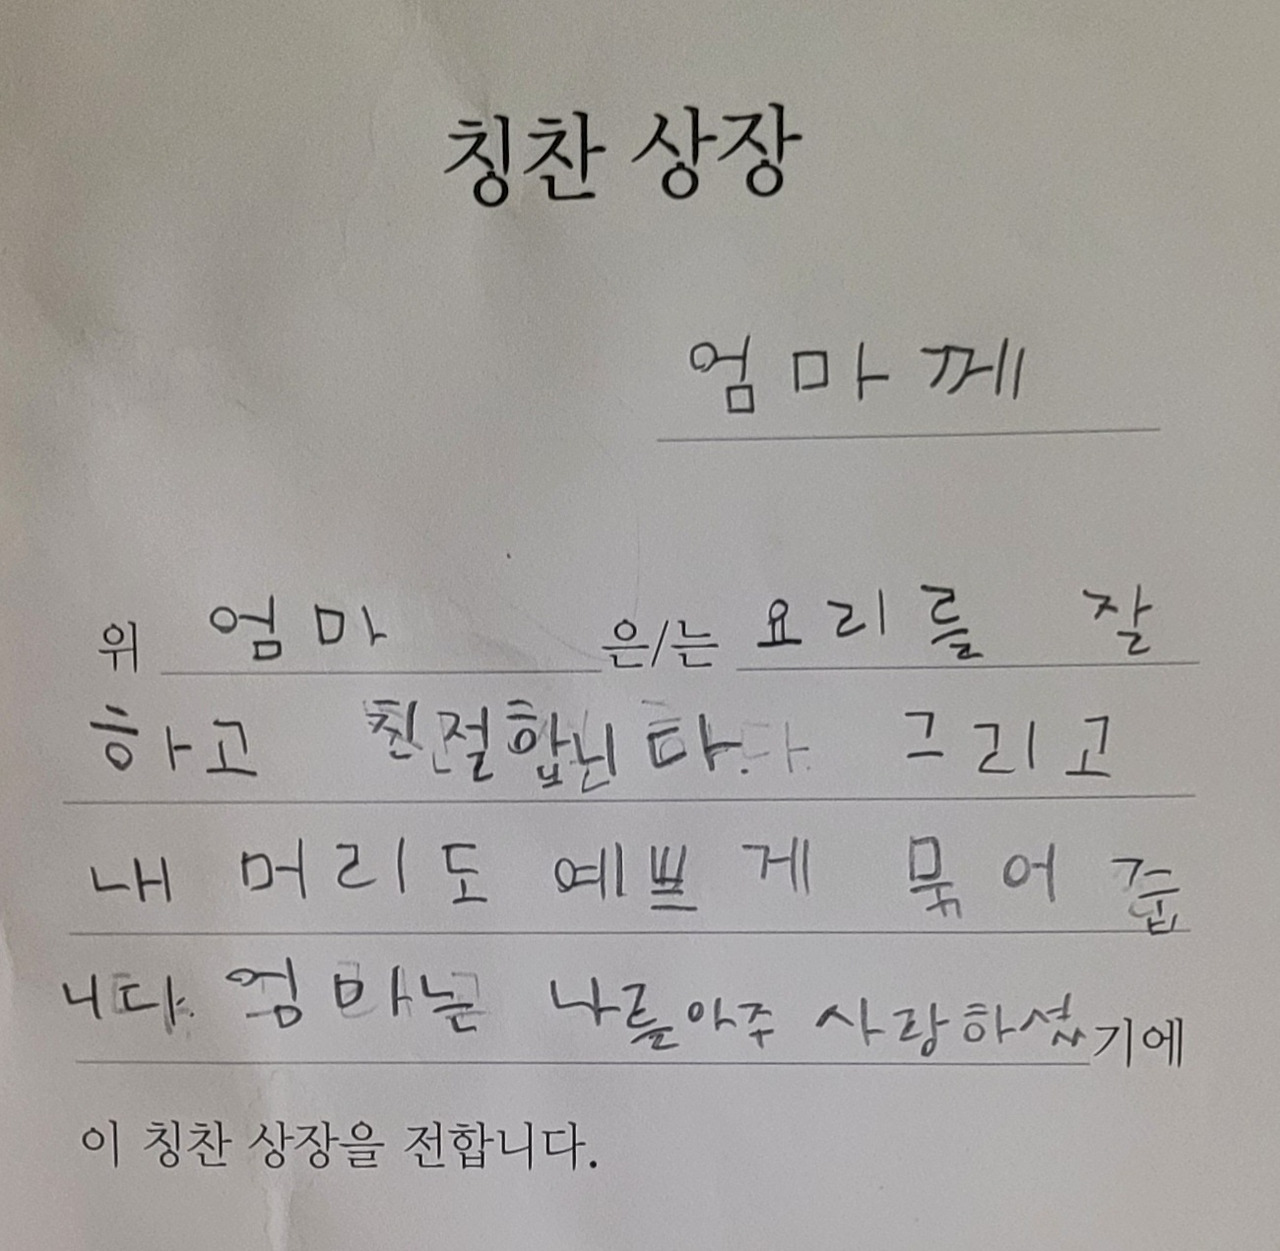 칭찬 상장
엄마께
위 엄마 은/는 요리를 잘
하고 친절합닌다. 그리고
내 머리도 예쁘게 묶어 줍
니다. 엄마는 나를 아주 사랑하셨기에
이 칭찬 상장을 전합니다.